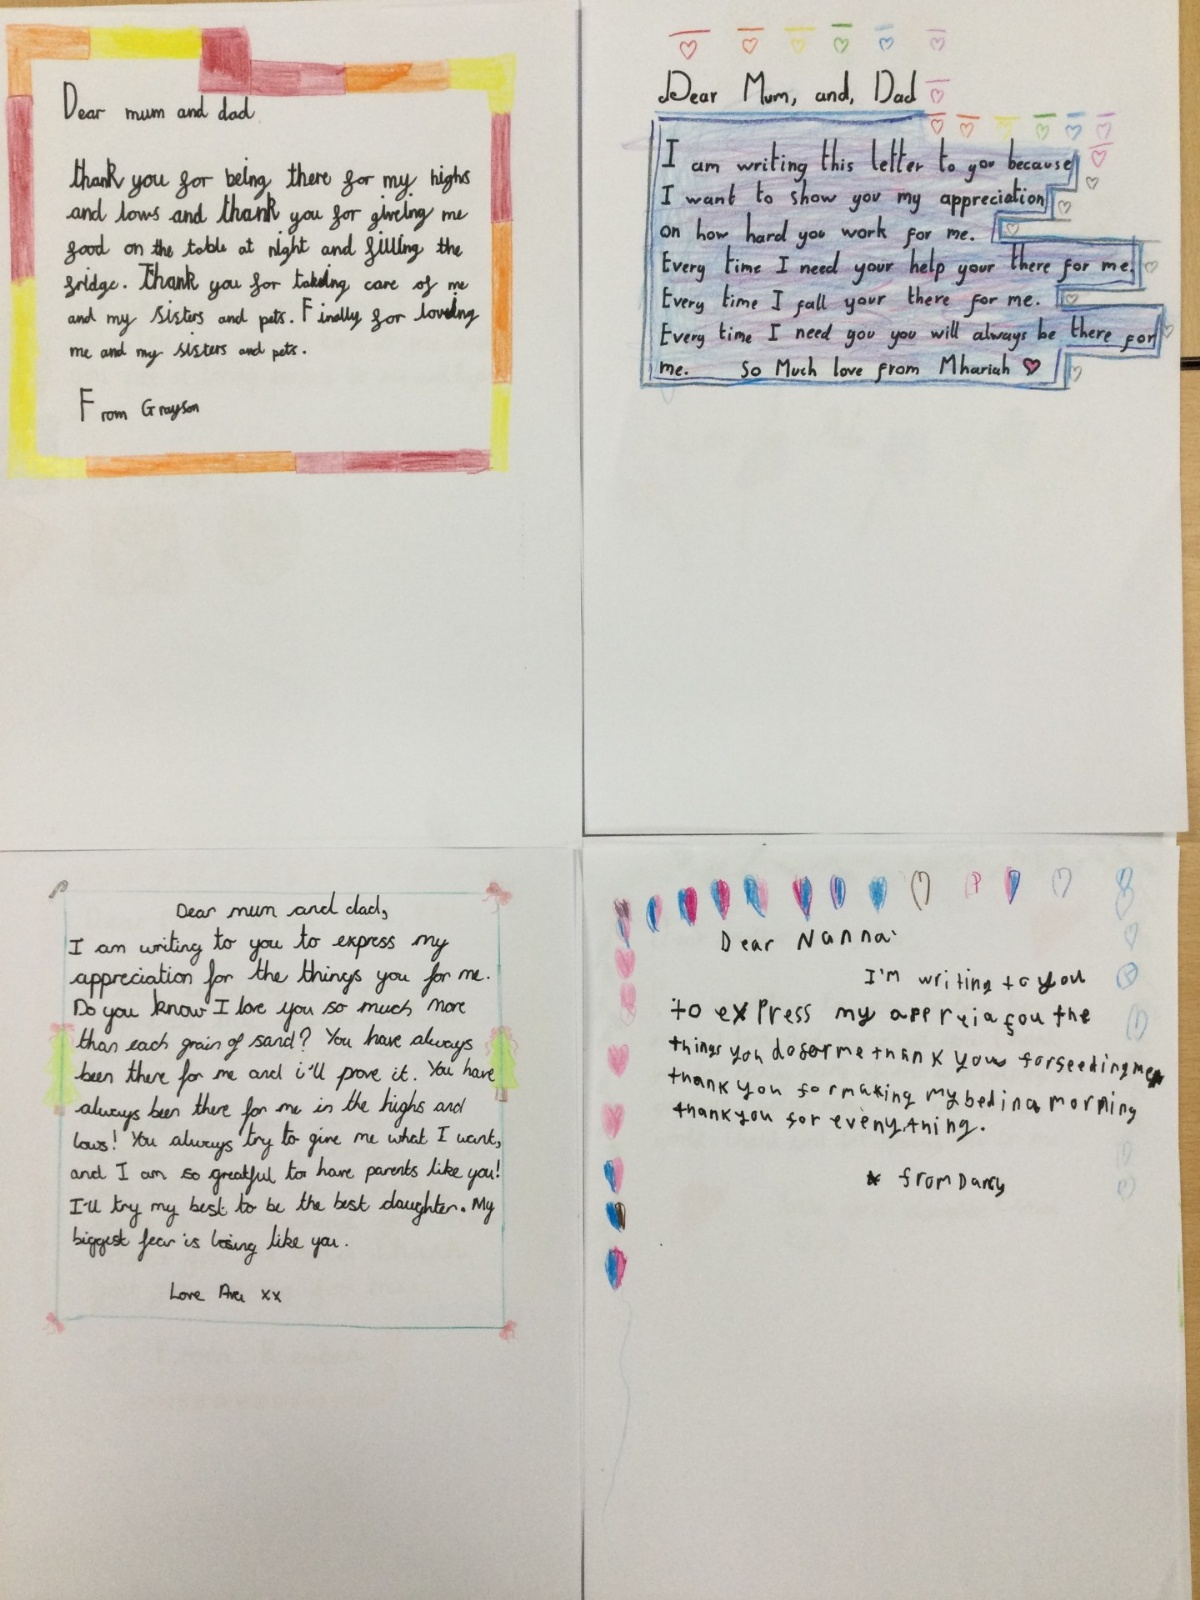 Dear mum and dad
thank you for being there for my highs
and lows and thank you for giveing me
food on the table at night and filling the
fridge. Thank you for takeing care of me
and my sisters and pets. Finally for loveing
me and my sisters and pets.
From Grayson
Dear Mum, and, Dad
I am writing this letter to you because
I want to show you my appreciation
on how hard you work for me.
Every time I need your help your there for me.
Every time I fall your there for me.
Every time I need you you will always be there for
me. So Much love from Mhariah
Dear mum and dad,
I am writing to you to express my
appreciation for the things you for me.
Do you know I love you so much more
than each grain of sand? You have always
been there for me and i'll prove it. You have
always been there for me in the highs and
lows! You always try to give me what I want,
and I am so greatful to have parents like you!
I'll try my best to be the best daughter. My
biggest fear is losing like you.
Love Ava xx
Dear Nanna
I'm writing to you
to exPress my
things you do for me thank you for seeding me
thank you for making my bed in a morning
thank you for everything.
from Darcy